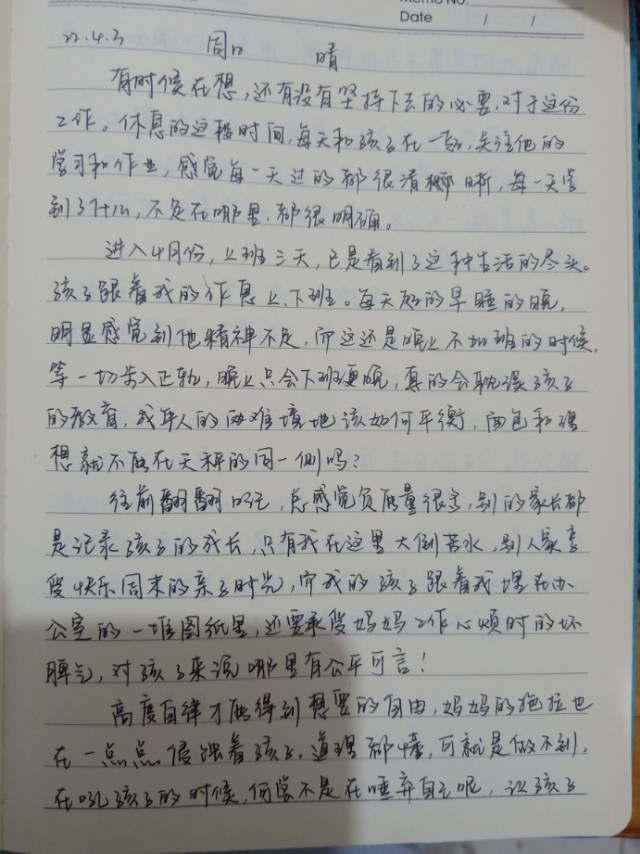 Memo No.
Date / /
22.4.3 周日 晴
有时候在想,还有没有坚持下去的必要,对于这份
工作。休息的这段时间,每天和孩子在一起,关注他的
学习和作业,感觉每一天过的都很清晰,每一天学
到了什么,不足在哪里,都很明确。
进入4月份,上班三天,已是看到了这种生活的尽头。
孩子跟着我的作息上、下班。每天起的早睡的晚,
明显感觉到他精神不足,而这还是晚上不加班的时候,
等一切步入正轨,晚上只会下班更晚,真的会耽误孩子
的教育,成年人的两难境地该如何平衡,面包和理
想就不能在天秤的同一侧吗?
往前翻翻日记,总感觉负能量很多,别的家长都
是记录孩子的成长,只有我在这里大倒苦水,别人家享
受快乐周末的亲子时光,而我的孩子跟着我埋在办
公室的一堆图纸里,还要承受妈妈工作心烦时的坏
脾气,对孩子来说哪里有公平可言!
高度自律才能得到想要的自由,妈妈的拖拉也
在一点点侵蚀着孩子,道理都懂,可就是做不到,
在吼孩子的时候,何尝不是在唾弃自己呢,让孩子